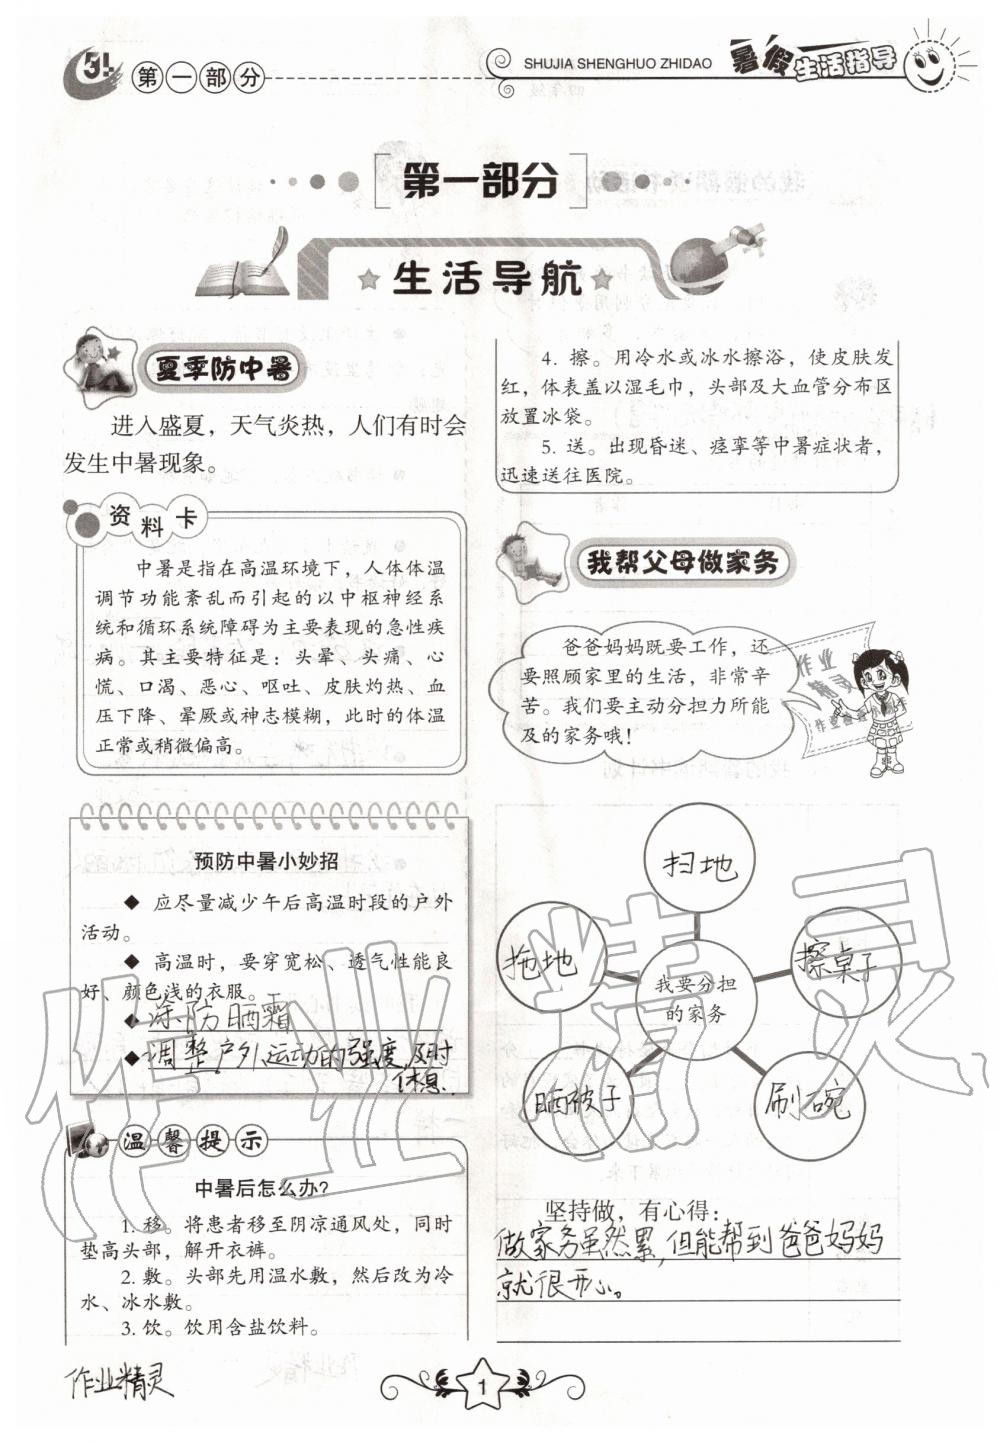 第一部分
SHUJIA SHENGHUO ZHIDAO
暑假生活指导
第一部分
生活导航
夏季防中暑
进入盛夏，天气炎热，人们有时会
发生中暑现象。
资料卡
中暑是指在高温环境下，人体体温
调节功能紊乱而引起的以中枢神经系
统和循环系统障碍为主要表现的急性疾
病。其主要特征是：头晕、头痛、心
慌、口渴、恶心、呕吐、皮肤灼热、血
压下降、晕厥或神志模糊，此时的体温
正常或稍微偏高。
预防中暑小妙招
◆ 应尽量减少午后高温时段的户外
活动。
◆ 高温时，要穿宽松、透气性能良
好、颜色浅的衣服。
◆ 涂防晒霜
◆ 调整户外运动的强度，及时
休息.
温馨提示
中暑后怎么办?
1. 移。将患者移至阴凉通风处，同时
垫高头部，解开衣裤。
2. 敷。头部先用温水敷，然后改为冷
水、冰水敷。
3. 饮。饮用含盐饮料。
4. 擦。用冷水或冰水擦浴，使皮肤发
红，体表盖以湿毛巾，头部及大血管分布区
放置冰袋。
5. 送。出现昏迷、痉挛等中暑症状者，
迅速送往医院。
我帮父母做家务
爸爸妈妈既要工作，还
要照顾家里的生活，非常辛
苦。我们要主动分担力所能
及的家务哦！
作业
精灵
扫地
拖地
擦桌子
我要分担
的家务
晒被子
刷碗
坚持做，有心得：
做家务虽然累，但能帮到爸爸妈妈
就很开心。
作业精灵
作业精灵
1